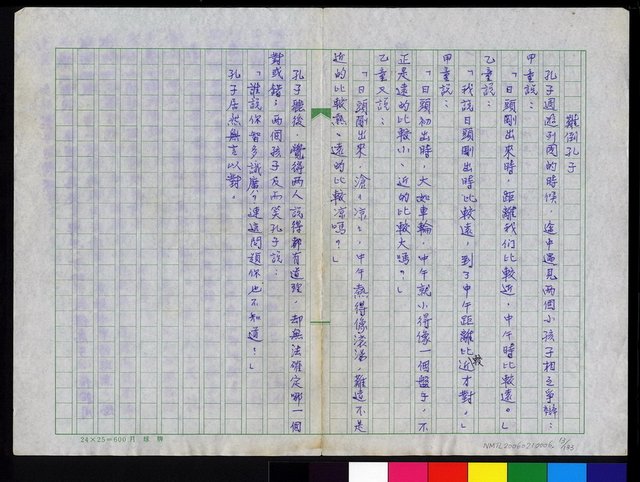 難倒孔子
孔子週遊列國的時候，途中遇見兩個小孩子相互爭辯：
甲童說：
「日頭剛出來時，距離我們比較近，中午時比較遠。」
乙童說：
「我說日頭剛出時比較遠，到了中午距離比較近才對。」
甲童說：
「日頭初出時，大如車輪，中午就小得像一個盤子，不
正是遠的比較小，近的比較大嗎？」
乙童又說：
「日頭剛出來，滄滄涼涼，中午熱得像滾湯，難道不是
近的比較熱，遠的比較凉嗎？」
孔子聽後，覺得兩人說得都有道理，却無法確定哪一個
對或錯；兩個孩子反而笑孔子說：
「誰說你智多識廣？連這問題你也不知道？」
孔子居然無言以對。
24×25=600月球牌
NMTL20060210006
13/193